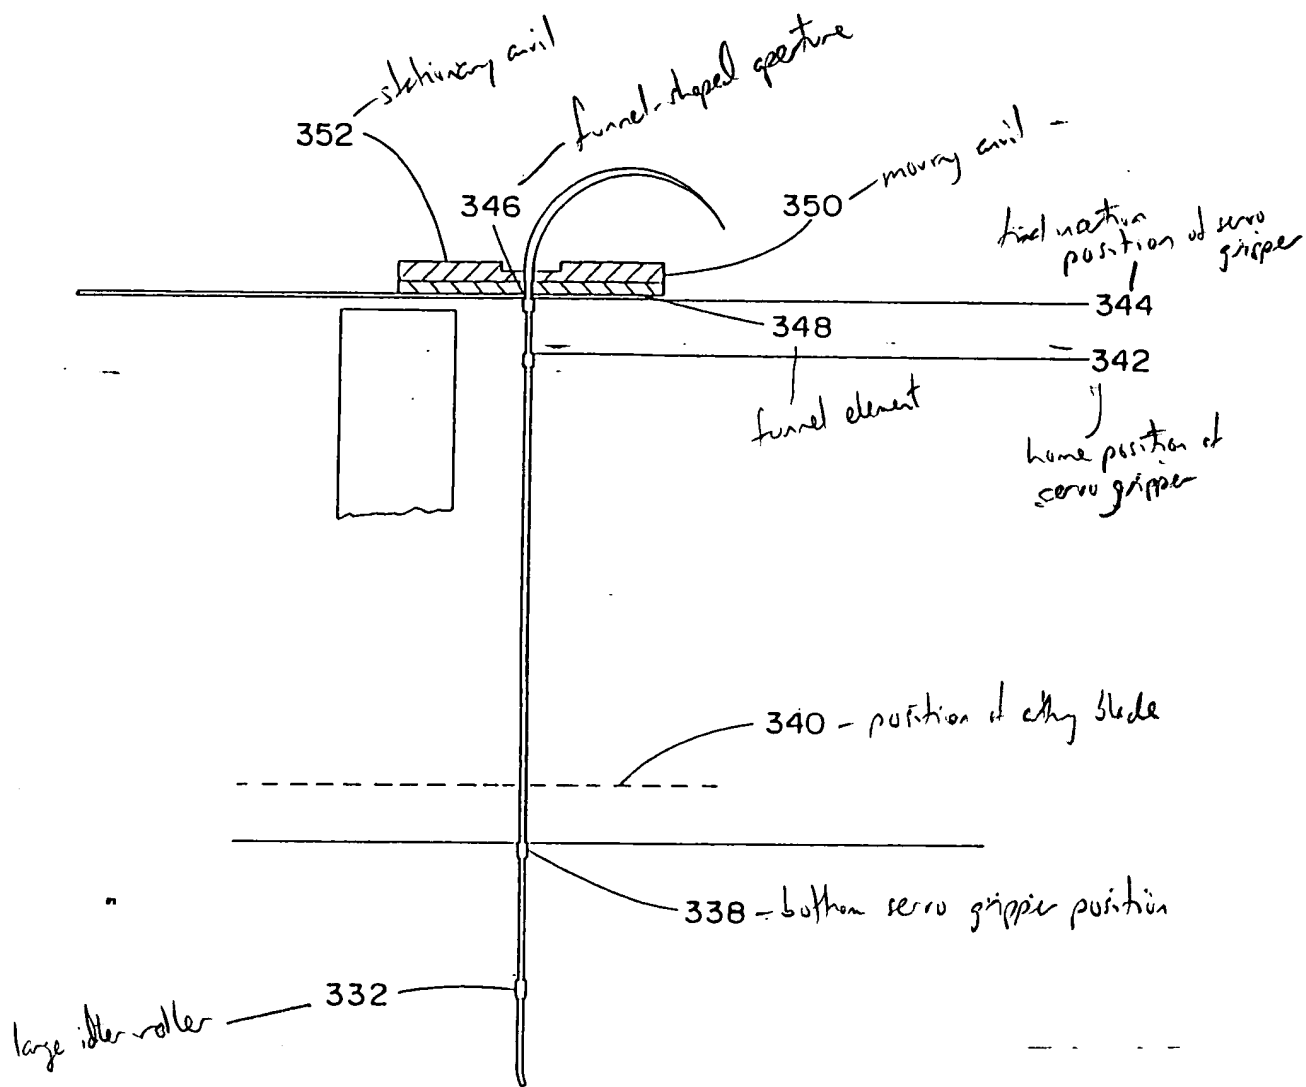 stationary anvil
352
funnel-shaped aperture
346
moving anvil
350
position of servo
gripper
344
348
funnel element
342
home position of
servo gripper
340 - position of cutting blade
338 - bottom servo gripper position
332
large idler roller